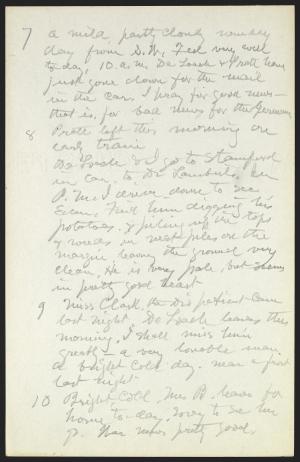 7 a mild partly cloudy
day from S.W. Feel very well
to-day, 10. a.m. De Loach & Pratt have
just gone down for the mail
in the car. I pray for good news—
that is, for bad news for the Germans
8 Pratt left this morning on
early train
De Loach & I go to Stamford
in car, to Dr Lamberts. In
P.M. I drive down to see
Eden. Find him digging his
potatoes, & piling up the tops
& weeds in neat piles on the
margin leaving the ground very
clean. He is very pale, but seems
in pretty good heart
9 Miss Clark, the Drs patient came
last night. De Loach leaves this
morning. I shall miss him
greatly — a very lovable man
a bright cold day. near a frost
last night
10 Bright, cold, Mrs B. leaves for
home to-day. sorry to see her
go. War news pretty good.